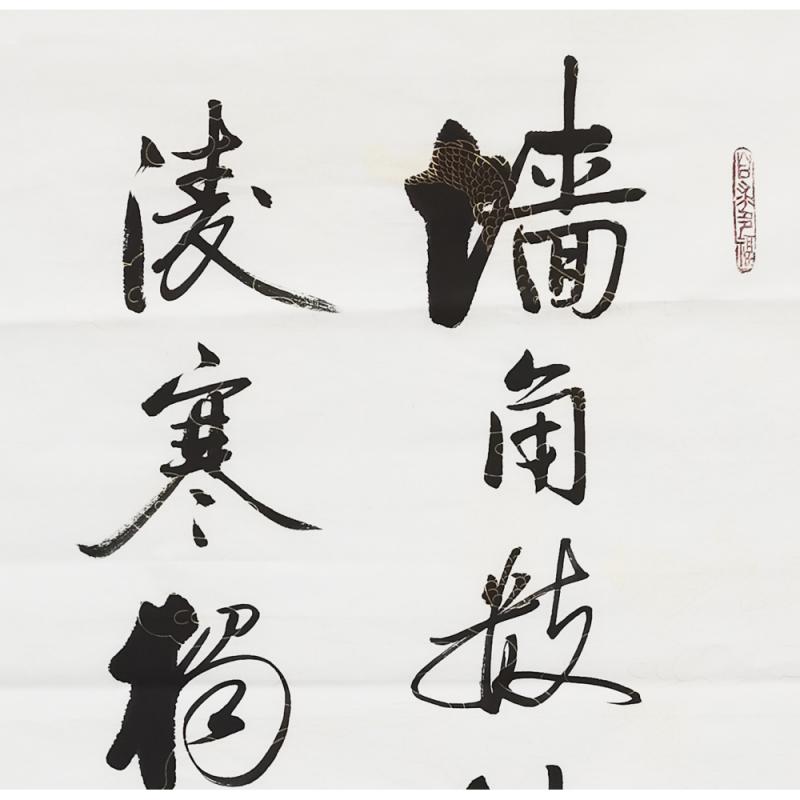 墙角数
凌寒獨